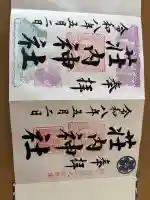 奉拝
荘内神社
令和八年五月二日
奉拝
荘内神社
令和八年五月二日